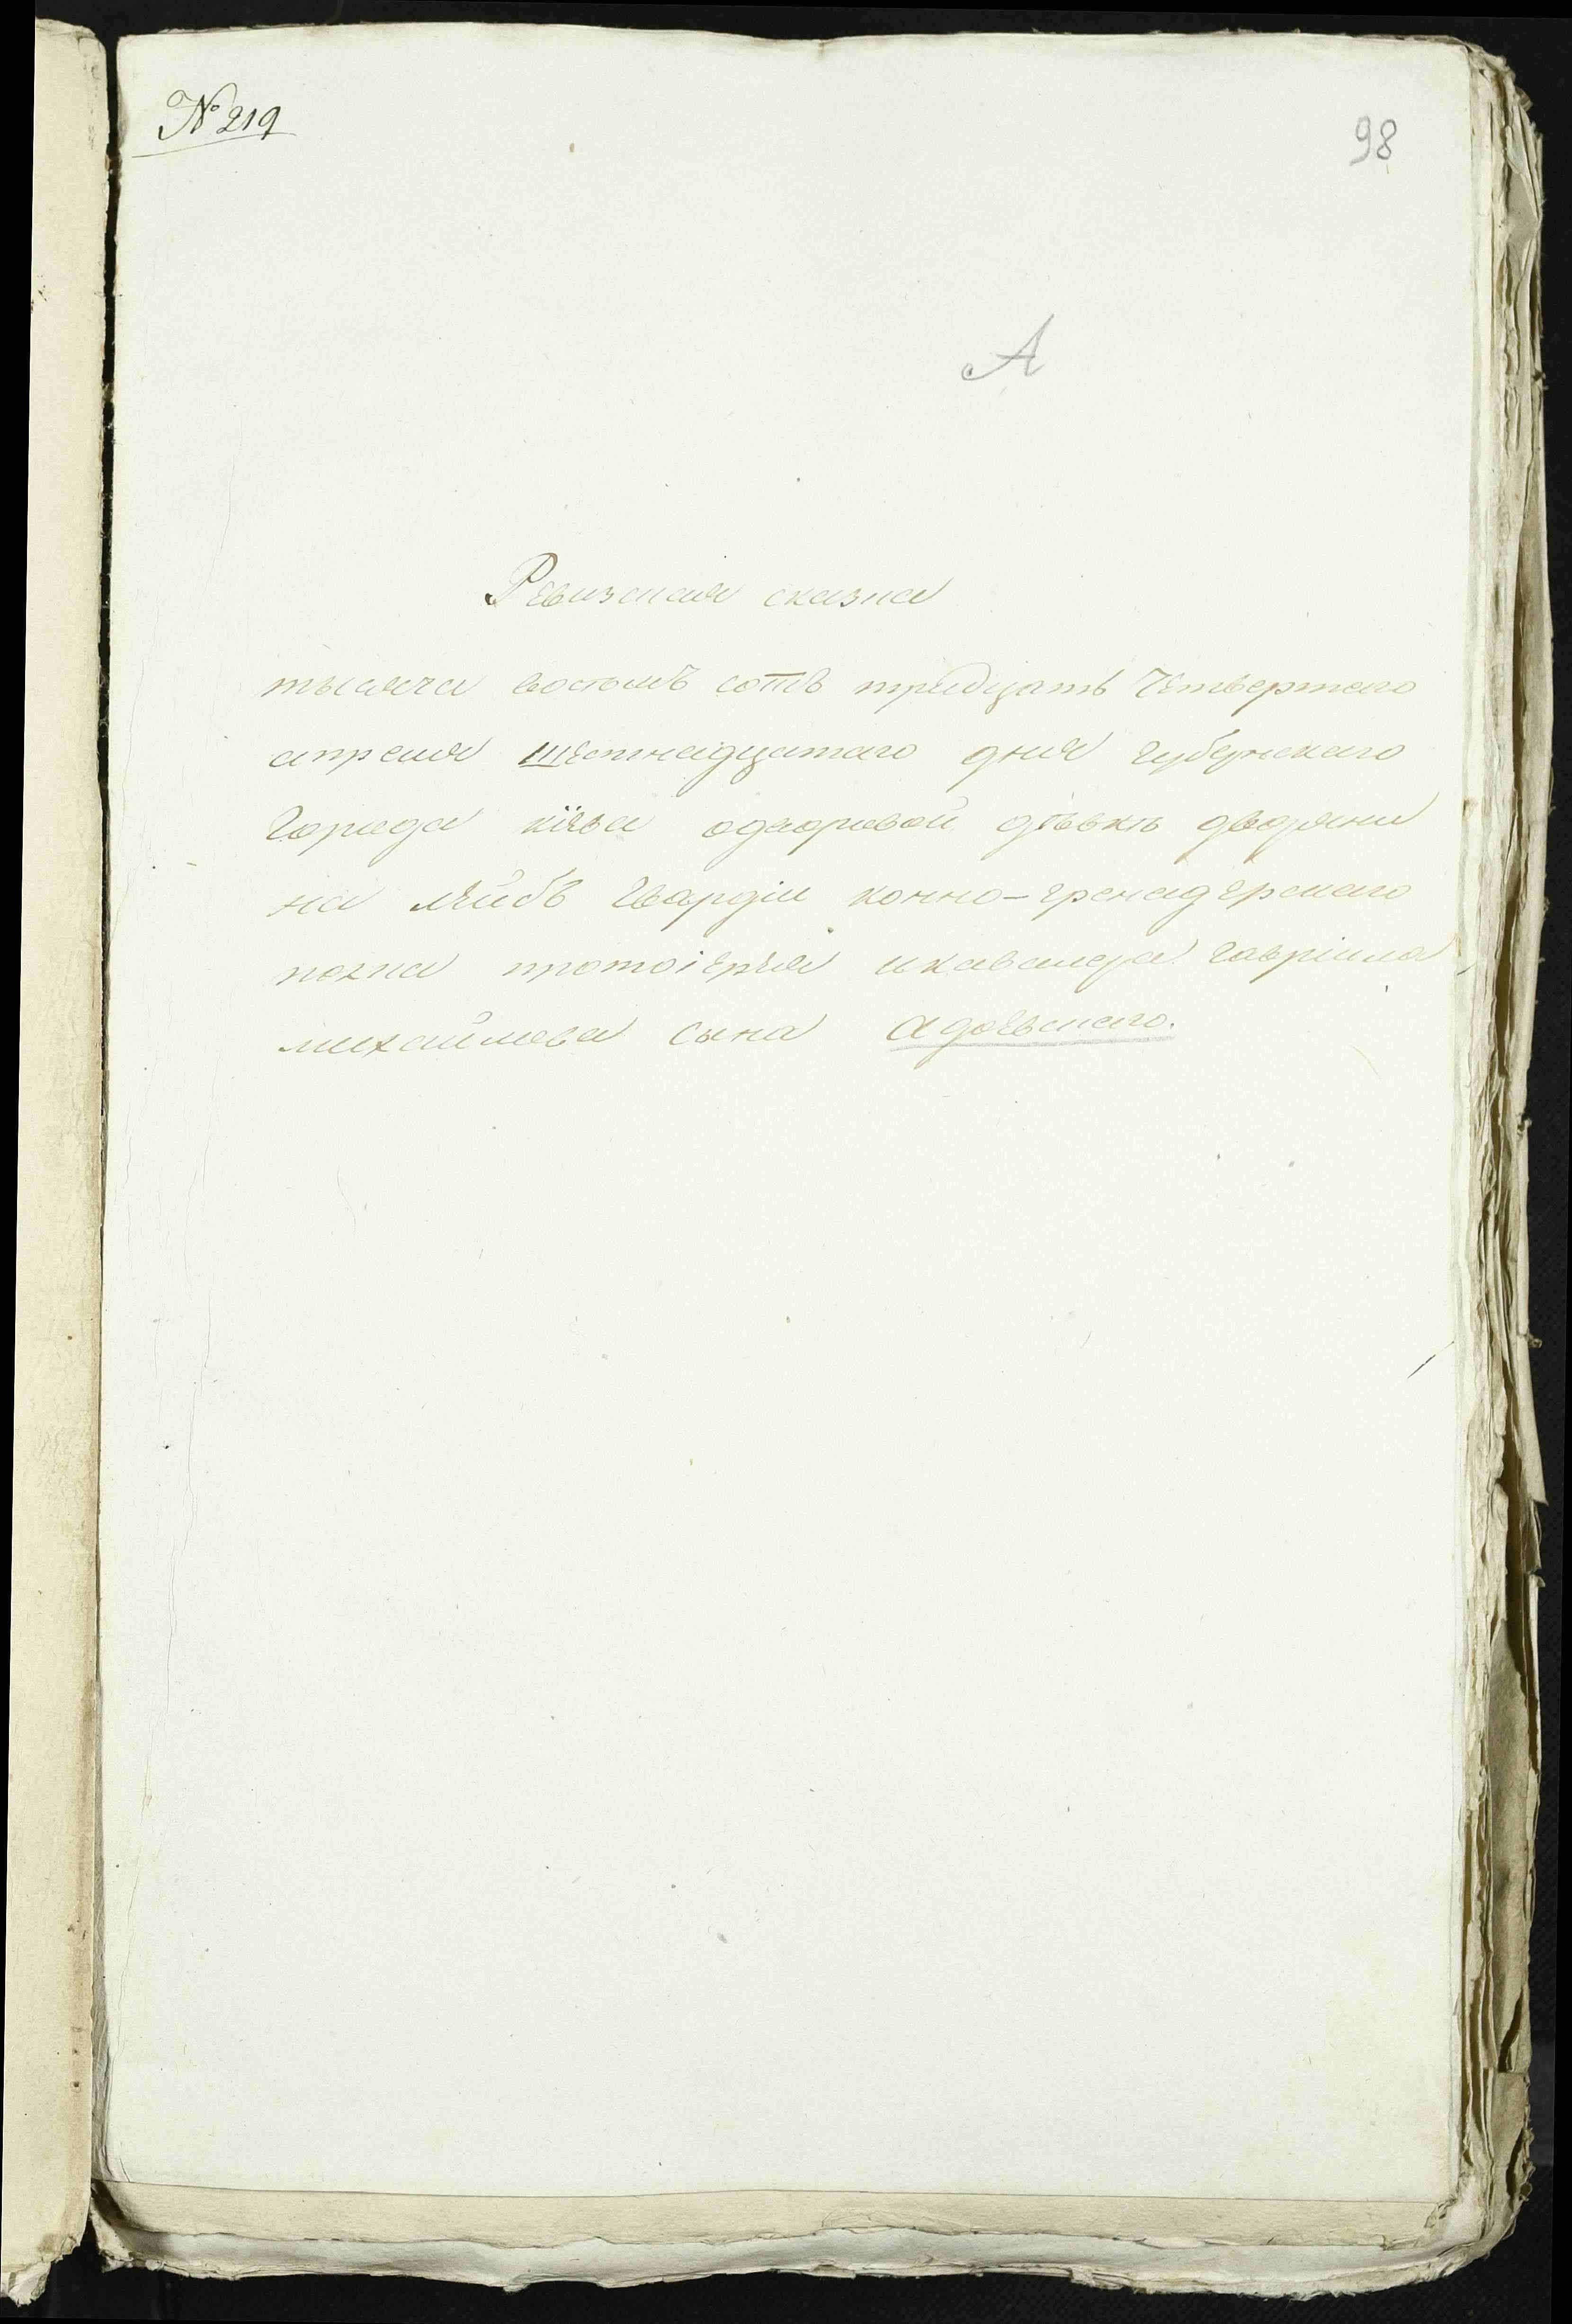 № 219
98
А
Ревизская сказка
тысяча восемъ сотъ тридцать Четвертаго
апреля шестнадцатаго дня губернскаго
Города кіева одворовой девке дворяни
на лейбъ Гвардіи конно-гренадерскаго
полка протоіерея икавалера гавріила
михайлова сына Адоевскаго.